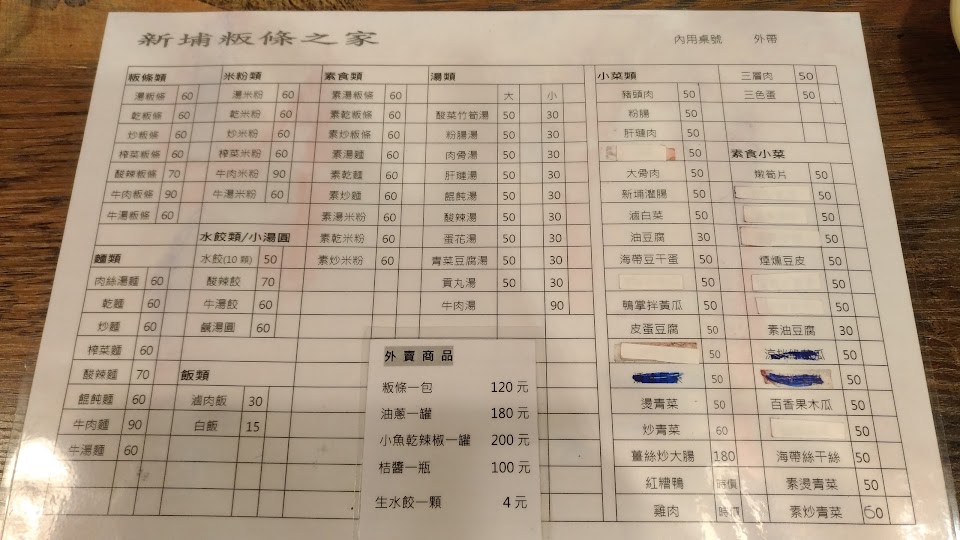 新埔粄條之家 內用桌號 外帶
粄條類
湯粄條 60
乾粄條 60
炒粄條 60
榨菜粄條 60
酸辣粄條 70
牛肉粄條 90
牛湯粄條 60
麵類
肉絲湯麵 60
乾麵 60
炒麵 60
榨菜麵 60
酸辣麵 70
餛飩麵 60
牛肉麵 90
牛湯麵 60
米粉類
湯米粉 60
乾米粉 60
炒米粉 60
榨菜米粉 60
牛肉米粉 90
牛湯米粉 60
水餃類/小湯圓
水餃(10 顆) 50
酸辣餃 70
牛湯餃 60
鹹湯圓 60
飯類
滷肉飯 30
白飯 15
素食類
素湯粄條 60
素乾粄條 60
素炒粄條 60
素湯麵 60
素乾麵 60
素炒麵 60
素湯米粉 60
素乾米粉 60
素炒米粉 60
湯類
大 小
酸菜竹筍湯 50 30
粉腸湯 50 30
肉骨湯 50 30
肝璉湯 50 30
餛飩湯 50 30
酸辣湯 50 30
蛋花湯 50 30
青菜豆腐湯 50 30
貢丸湯 50 30
牛肉湯 90
外賣商品
粄條一包 120 元
油蔥一罐 180 元
小魚乾辣椒一罐 200 元
桔醬一瓶 100 元
生水餃一顆 4 元
小菜類
豬頭肉 50
粉腸 50
肝璉肉 50
50
大骨肉 50
新埔灌腸 50
滷白菜 50
油豆腐 30
海帶豆干蛋 50
50
鴨掌拌黃瓜 50
皮蛋豆腐 50
50
50
燙青菜 50
炒青菜 60
薑絲炒大腸 180
紅糟鴨 時價
雞肉 時價
三層肉 50
三色蛋 50
素食小菜
嫩筍片 50
50
50
煙燻豆皮 50
50
素油豆腐 30
50
50
百香果木瓜 50
50
海帶絲干絲 50
素燙青菜 50
素炒青菜 60